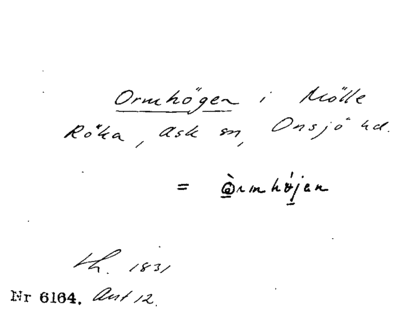 Ormhögen i Mölle
Röka, Ask sn, Onsjö hd.
= Òrmhøjen
th. 1831
Nr 6164. Ant 12.